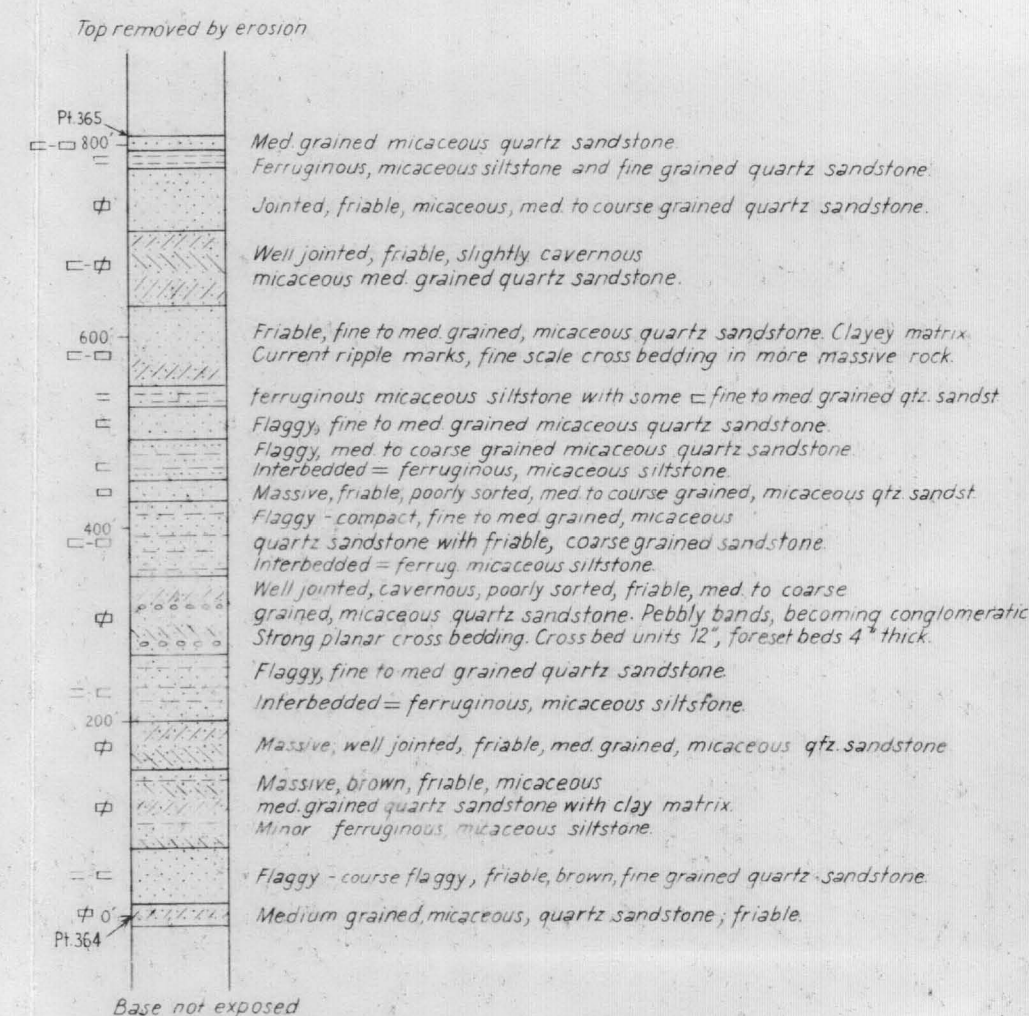 Top removed by erosion
Pt.365
800'
Med. grained micaceous quartz sandstone.
Ferruginous, micaceous siltstone and fine grained quartz sandstone.
Jointed, friable, micaceous, med. to course grained quartz sandstone.
Well jointed, friable, slightly cavernous
micaceous med. grained quartz sandstone.
600'
Friable, fine to med. grained, micaceous quartz sandstone. Clayey matrix.
Current ripple marks, fine scale cross bedding in more massive rock.
ferruginous micaceous siltstone with some ⊏ fine to med. grained qtz. sandst.
Flaggy, fine to med. grained micaceous quartz sandstone.
Flaggy, med. to coarse grained micaceous quartz sandstone.
Interbedded = ferruginous, micaceous siltstone.
Massive, friable, poorly sorted, med. to course grained, micaceous qtz. sandst.
400'
Flaggy - compact, fine to med. grained, micaceous
quartz sandstone with friable, coarse grained sandstone.
Interbedded = ferrug. micaceous siltstone.
Well jointed, cavernous, poorly sorted, friable, med. to coarse
grained, micaceous quartz sandstone. Pebbly bands, becoming conglomeratic
Strong planar cross bedding. Cross bed units 12", foreset beds 4" thick.
Flaggy, fine to med. grained quartz sandstone.
Interbedded = ferruginous, micaceous siltstone.
200'
Massive, well jointed, friable, med. grained, micaceous qtz. sandstone
Massive, brown, friable, micaceous
med. grained quartz sandstone with clay matrix.
Minor ferruginous, micaceous siltstone.
Flaggy - course flaggy, friable, brown, fine grained quartz sandstone.
0'
Medium grained, micaceous, quartz sandstone; friable.
Pt.364
Base not exposed